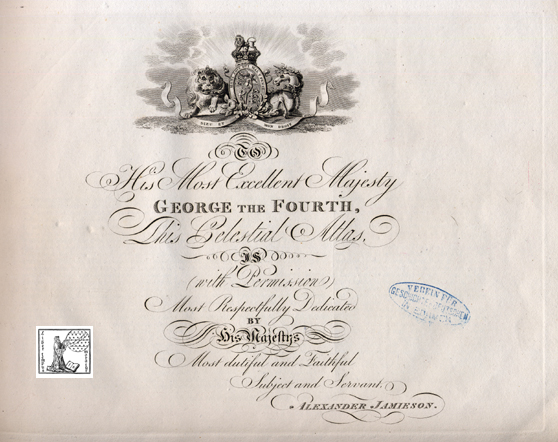 DIEU ET MON DROIT
TO
His Most Excellent Majesty
GEORGE THE FOURTH,
This Celestial Atlas,
IS
(with Permission)
Most Respectfully Dedicated
BY
His Majestys
Most dutiful and Faithful
Subject and Servant.
ALEXANDER JAMIESON.
VEREIN FÜR